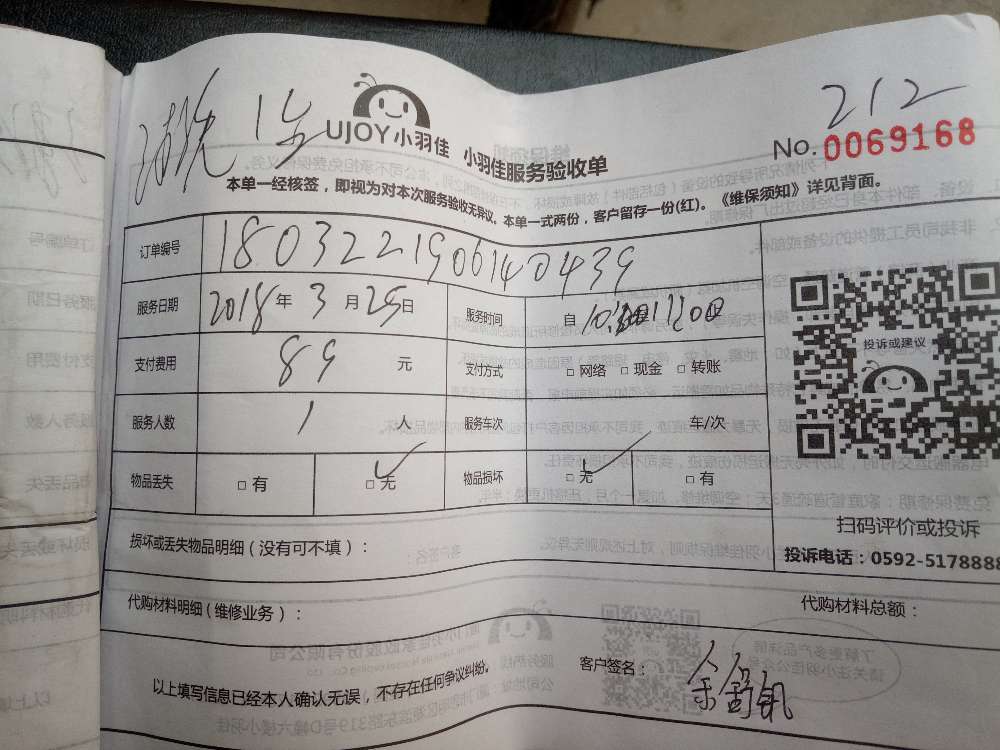 212
UJOY小羽佳 小羽佳服务验收单
No. 0069168
本单一经核签，即视为对本次服务验收无异议。本单一式两份，客户留存一份(红)。《维保须知》详见背面。
订单编号 180322190614 0439
服务日期 2018年3月25日 服务时间 自
支付费用 89 元 支付方式 □网络 □现金 □转账
服务人数 1 人 服务车次 车/次
物品丢失 □有 □无 ✓ 物品损坏 □无 ✓ □有
投诉或建议
扫码评价或投诉
投诉电话：0592-5178888
损坏或丢失物品明细（没有可不填）：
代购材料明细（维修业务）： 代购材料总额：
以上填写信息已经本人确认无误，不存在任何争议纠纷。
客户签名：